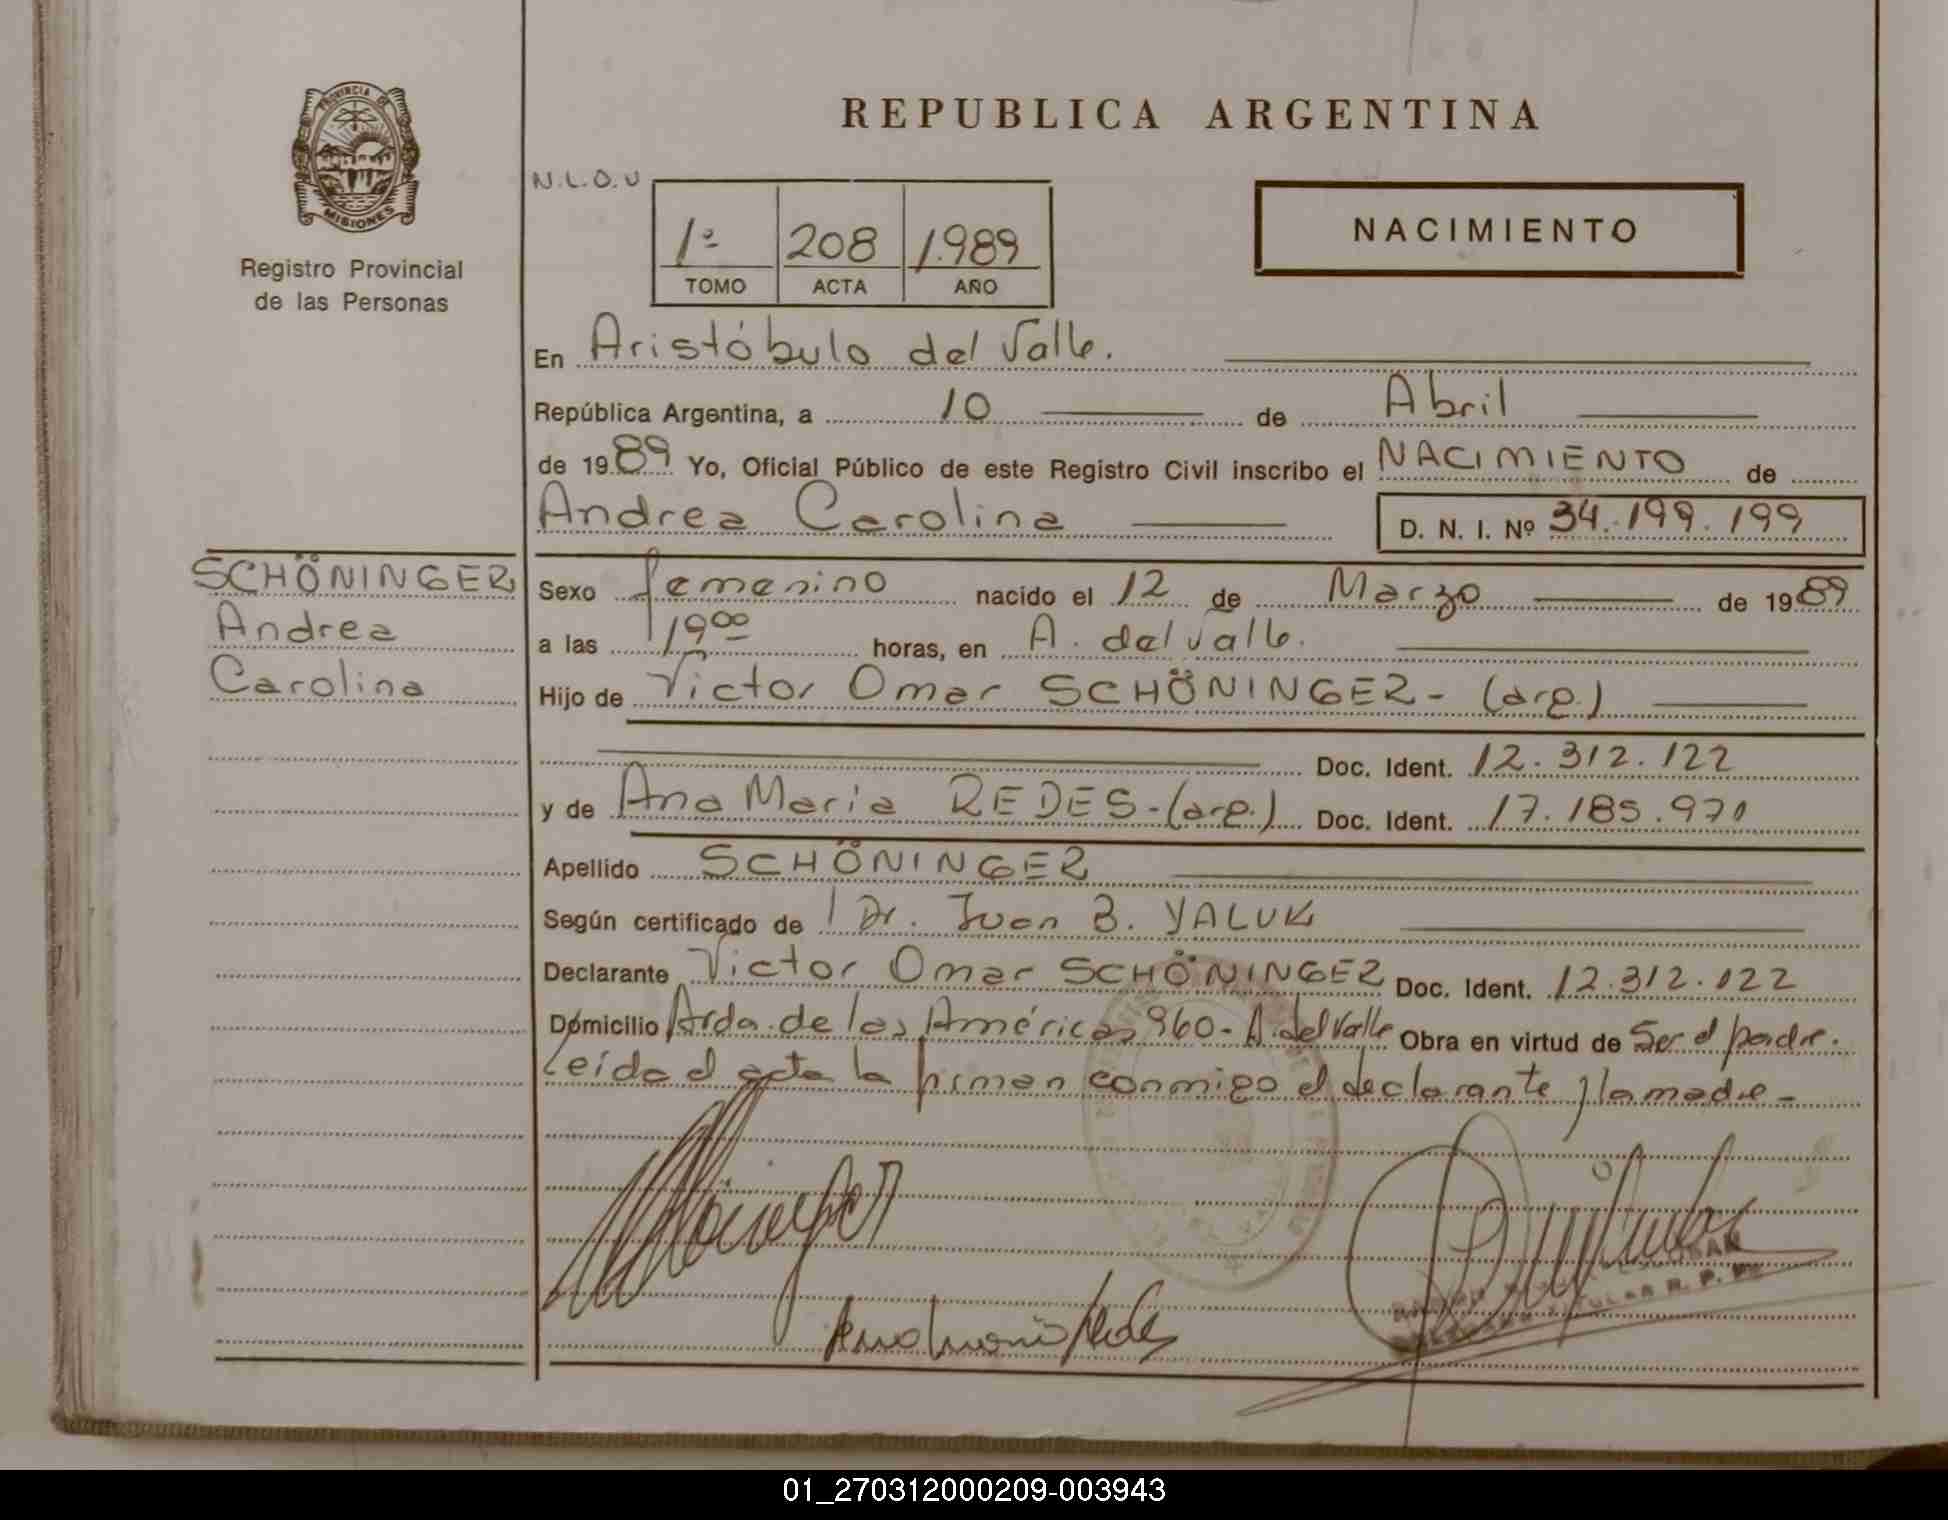 PROVINCIA DE
MISIONES
Registro Provincial
de las Personas
SCHÖNINGER
Andrea
Carolina
REPUBLICA ARGENTINA
N.L.O.U
1º 208 1.989
TOMO ACTA AÑO
NACIMIENTO
En Aristóbulo del Valle.
República Argentina, a 10 de Abril
de 1989 Yo, Oficial Público de este Registro Civil inscribo el NACIMIENTO de
Andrea Carolina D. N. I. Nº 34.199.199
Sexo femenino nacido el 12 de Marzo de 1989
a las 19 00 horas, en A. del Valle.
Hijo de Victor Omar SCHÖNINGER - (arg.)
Doc. Ident. 12.312.122
y de Ana Maria REDES - (arg.) Doc. Ident. 17.185.970
Apellido SCHÖNINGER
Según certificado de Dr. Juan B. YALUK
Declarante Victor Omar SCHÖNINGER Doc. Ident. 12.312.122
Domicilio Avda. de las Américas 960 - A. del Valle Obra en virtud de Ser el padre.
Leída el acta la firman conmigo el declarante y la madre -
Ana Maria Redes
TITULAR R. P. P.
01_270312000209-003943